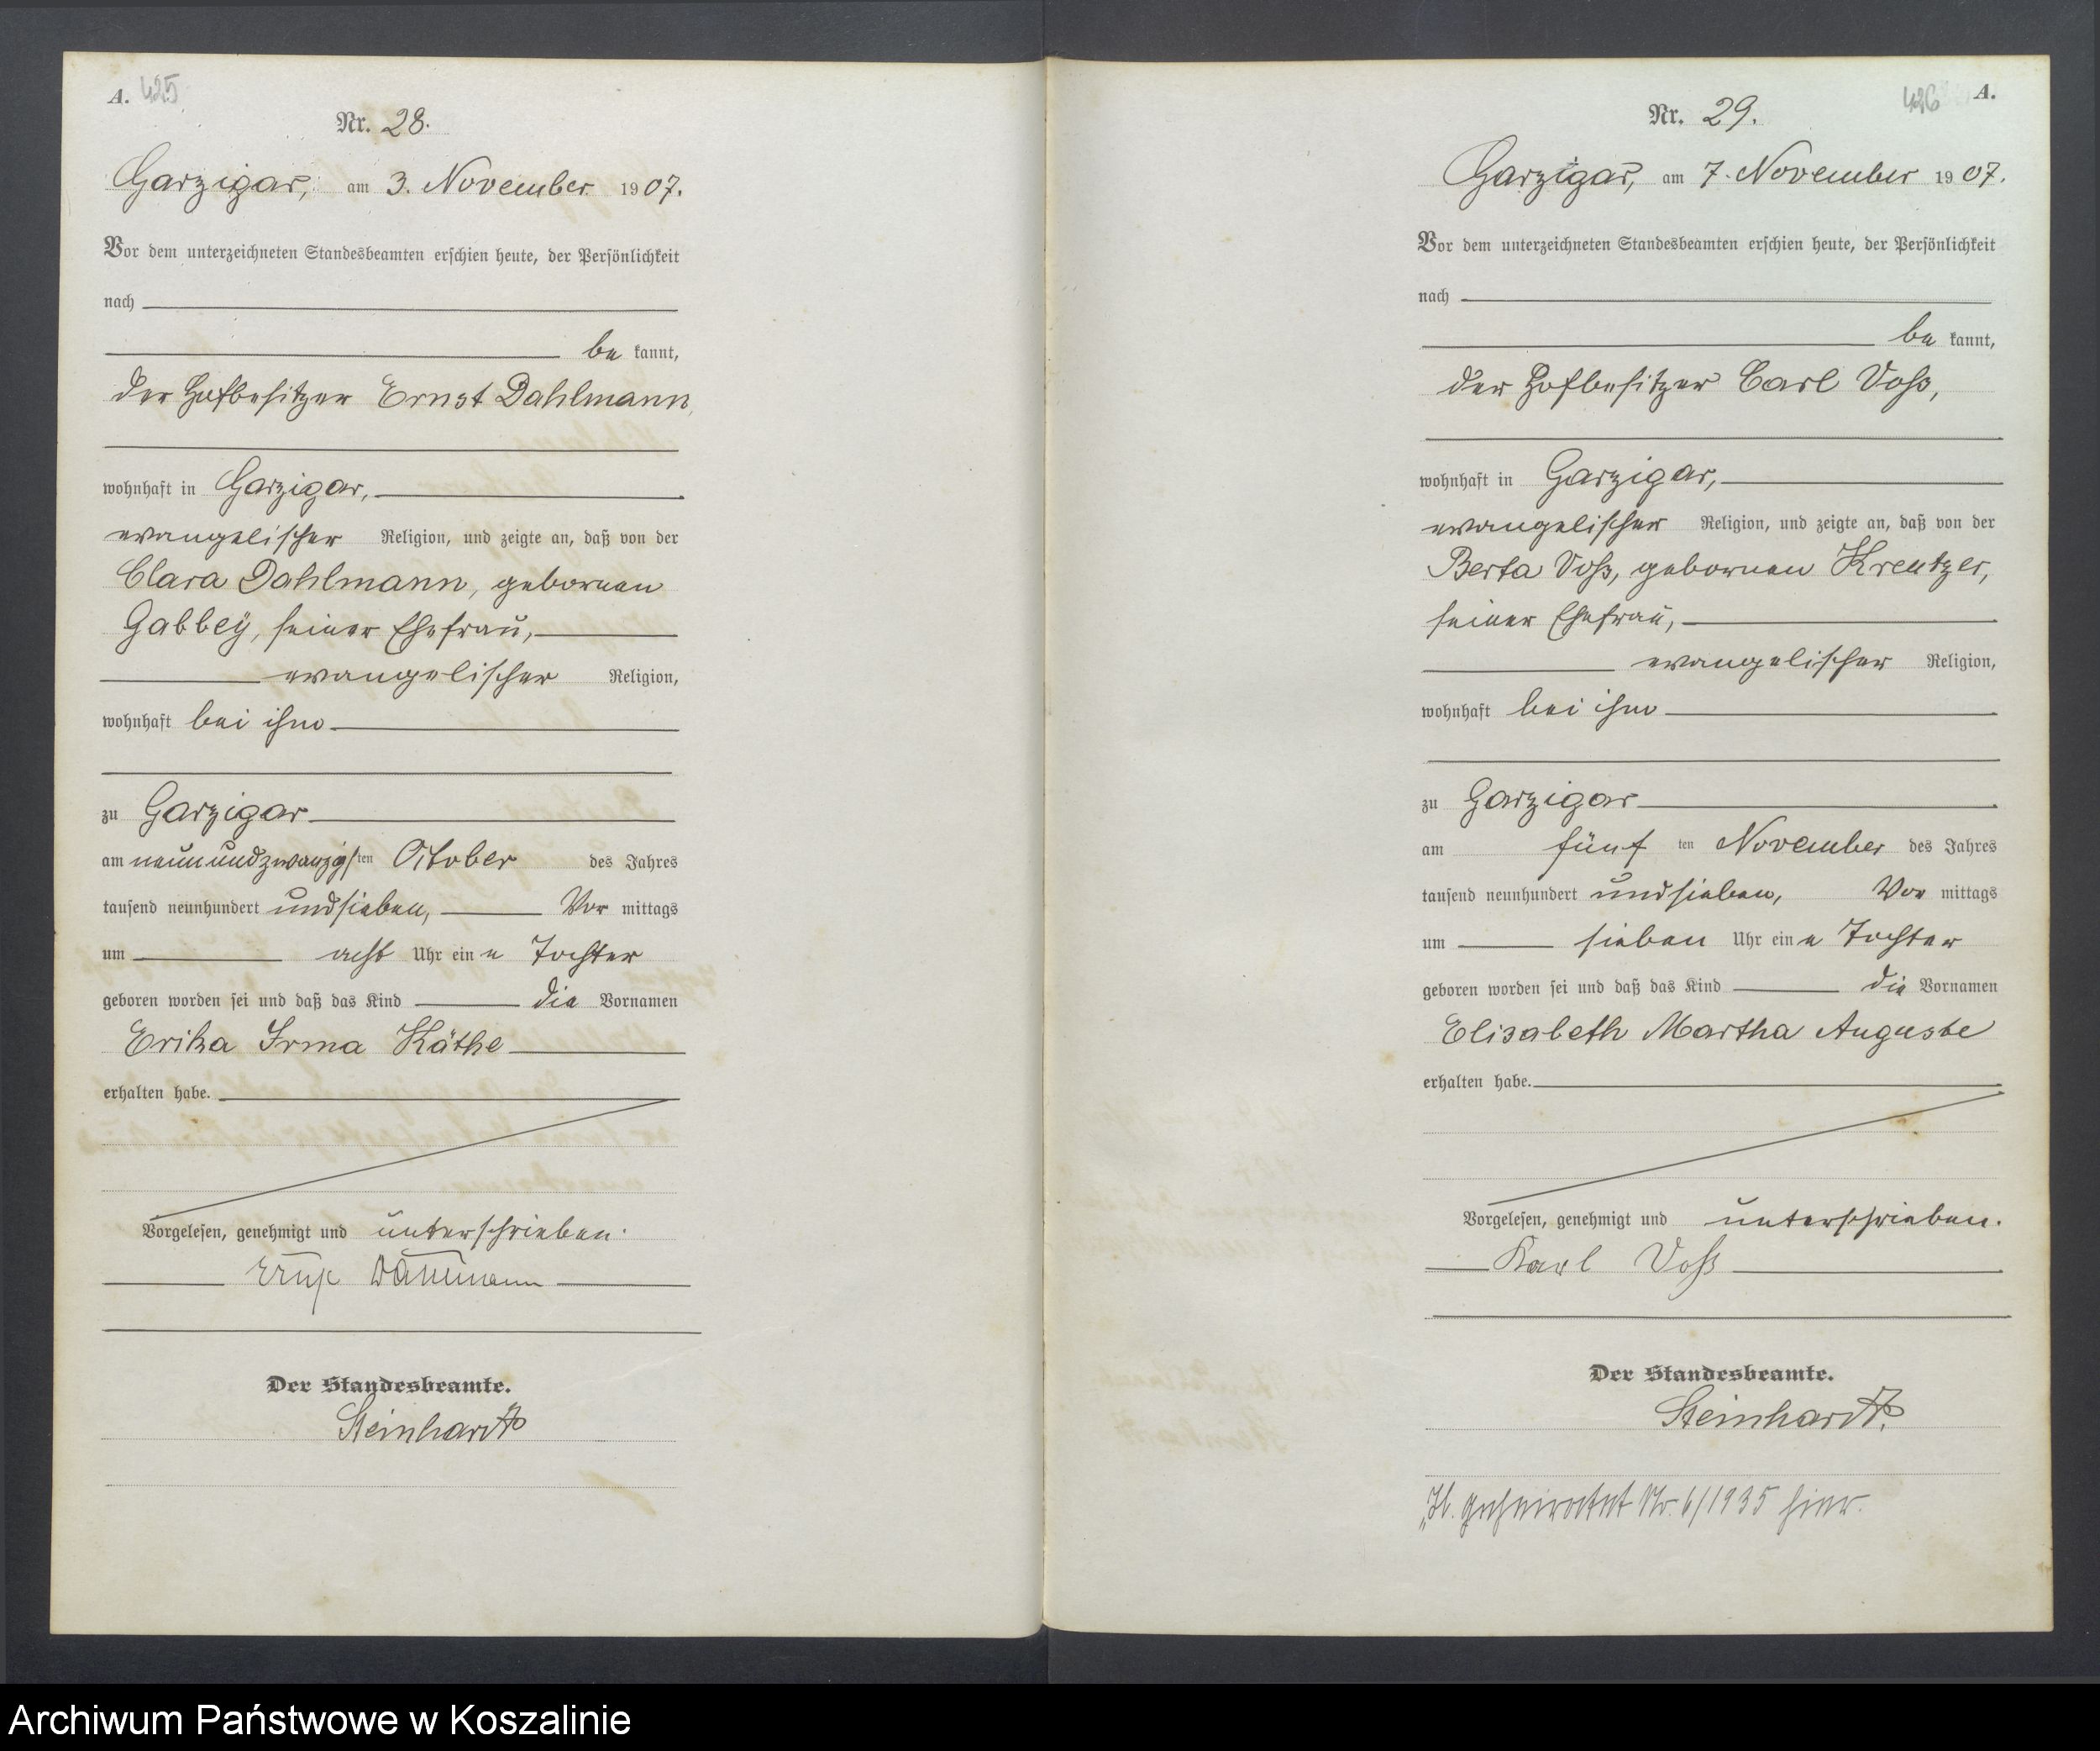 A. 425
Nr. 28.
Garzigar, am 3. November 1907.
Vor dem unterzeichneten Standesbeamten erschien heute, der Persönlichkeit
nach
be kannt,
der Hofbesitzer Ernst Dahlmann,
wohnhaft in Garzigar,
evangelischer Religion, und zeigte an, daß von der
Clara Dahlmann, gebornen
Gabbey, seiner Ehefrau,
evangelischer Religion,
wohnhaft bei ihm
zu Garzigar
am neunundzwanzigsten October des Jahres
tausend neunhundert undsieben, Vor mittags
um acht Uhr eine Tochter
geboren worden sei und daß das Kind die Vornamen
Erika Irma Käthe
erhalten habe.
Vorgelesen, genehmigt und unterschrieben.
Ernst Dahlmann
Der Standesbeamte.
Steinhardt
426 A.
Nr. 29.
Garzigar, am 7. November 1907.
Vor dem unterzeichneten Standesbeamten erschien heute, der Persönlichkeit
nach
be kannt,
der Hofbesitzer Carl Voß,
wohnhaft in Garzigar,
evangelischer Religion, und zeigte an, daß von der
Berta Voß, gebornen Kreutzer,
seiner Ehefrau,
evangelischer Religion,
wohnhaft bei ihm
zu Garzigar
am fünf ten November des Jahres
tausend neunhundert undsieben, Vor mittags
um sieben Uhr eine Tochter
geboren worden sei und daß das Kind die Vornamen
Elisabeth Martha Auguste
erhalten habe.
Vorgelesen, genehmigt und unterschrieben.
Karl Voß
Der Standesbeamte.
Steinhardt.
geheiratet Nr. 6/1935 hier.
Archiwum Państwowe w Koszalinie